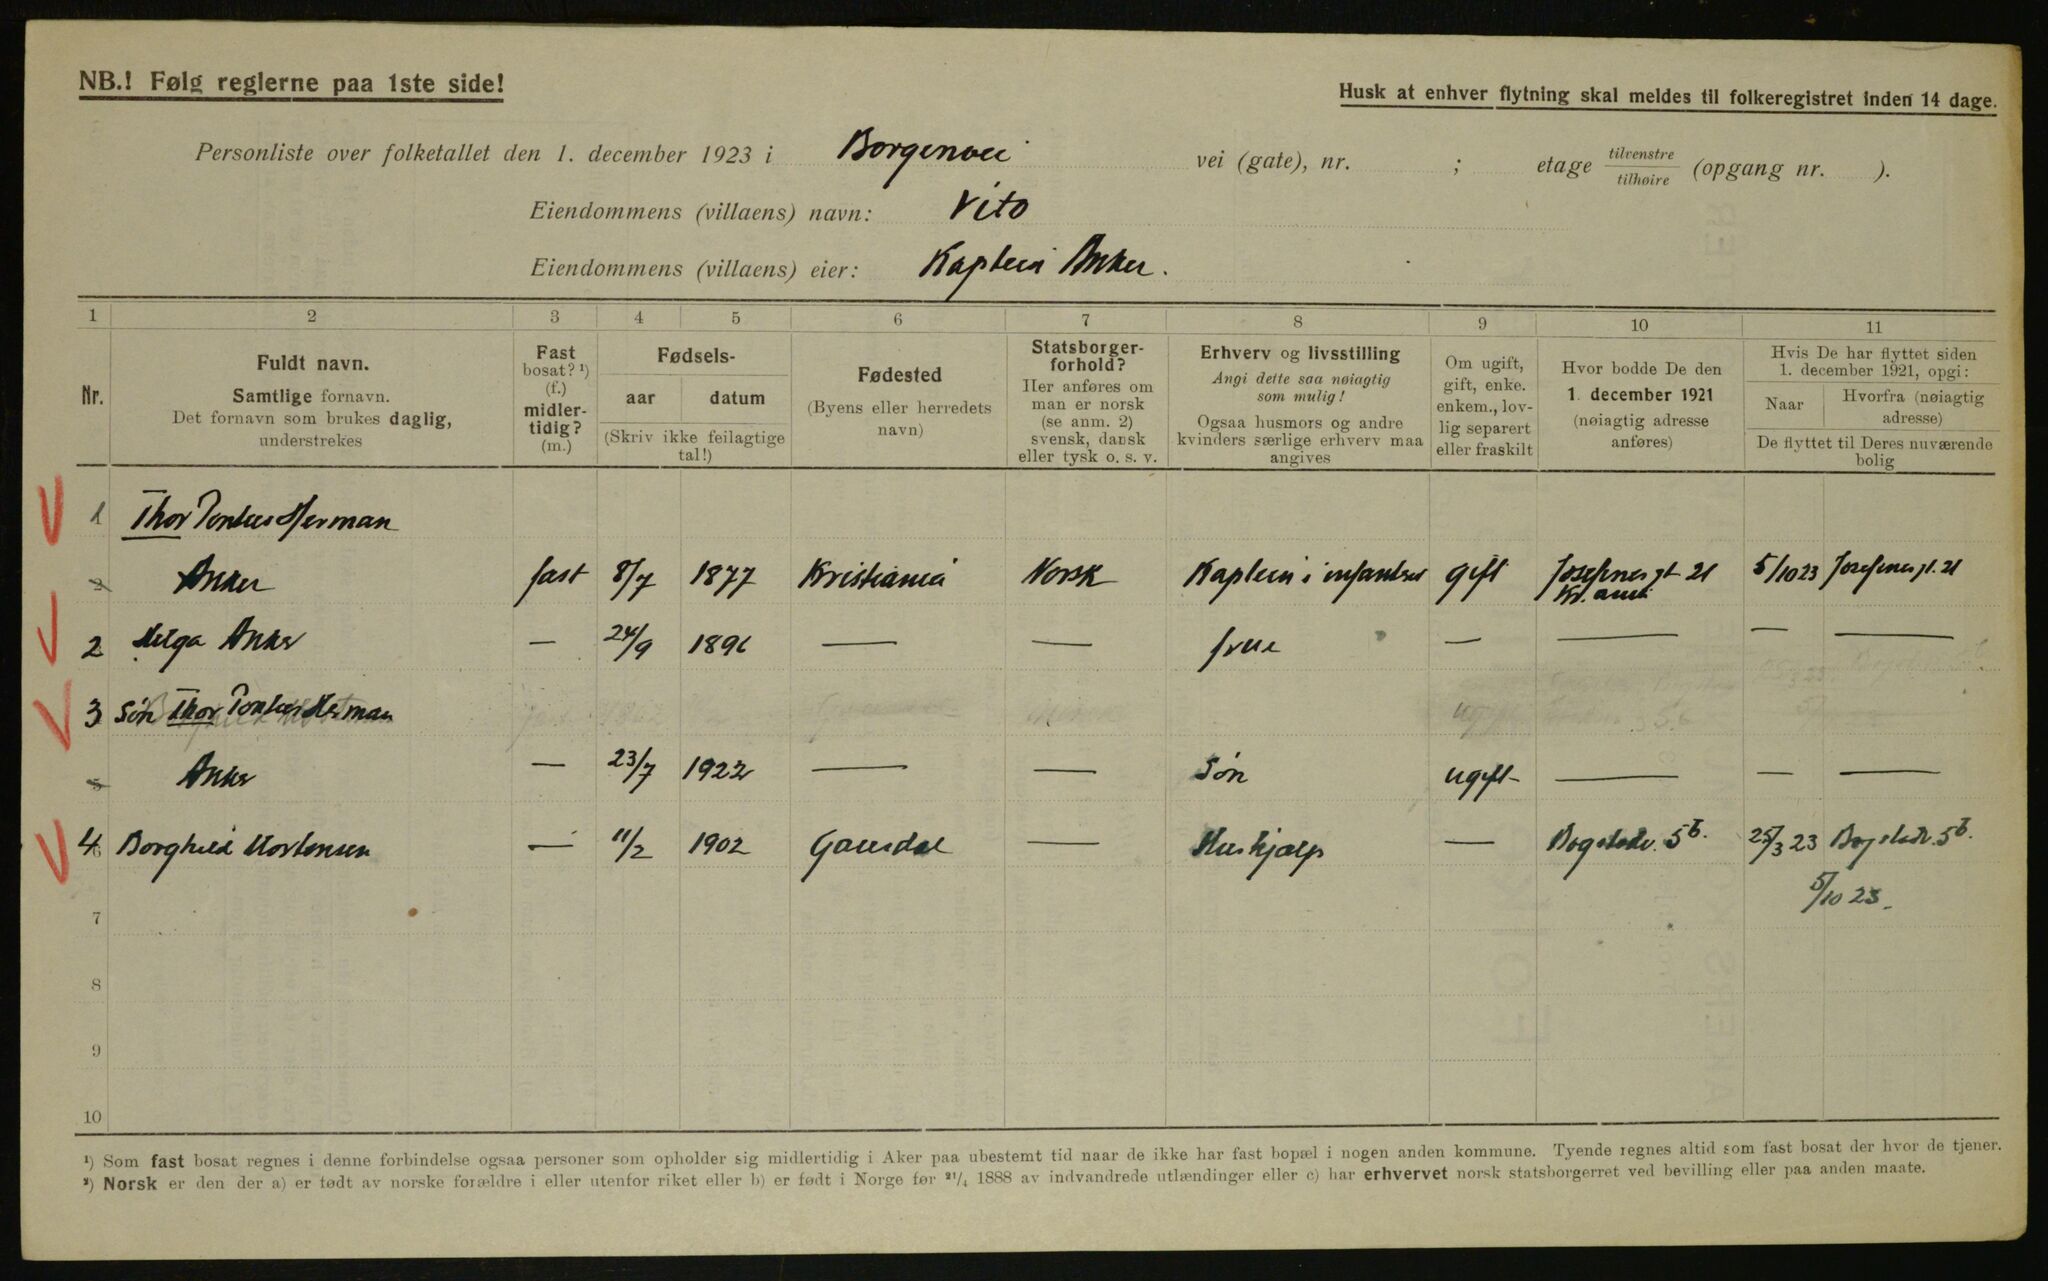 NB.! Følg reglerne paa 1ste side!
Husk at enhver flytning skal meldes til folkeregistret inden 14 dage.
Personliste over folketallet den 1. december 1923 i Borgenvei vei (gate), nr. ; etage tilvenstre/tilhøire (opgang nr. ).
Eiendommens (villaens) navn: Vito
Eiendommens (villaens) eier: Kaptein Anker.
1 2 3 4 5 6 7 8 9 10 11
Nr.
Fuldt navn.
Samtlige fornavn.
Det fornavn som brukes daglig,
understrekes
Fast
bosat? ¹)
(f.)
midler-
tidig?
(m.)
Fødsels-
aar datum
(Skriv ikke feilagtige
tal!)
Fødested
(Byens eller herredets
navn)
Statsborger-
forhold?
Her anføres om
man er norsk
(se anm. 2)
svensk, dansk
eller tysk o. s. v.
Erhverv og livsstilling
Angi dette saa nøiagtig
som mulig!
Ogsaa husmors og andre
kvinders særlige erhverv maa
angives
Om ugift,
gift, enke.
enkem., lov-
lig separert
eller fraskilt
Hvor bodde De den
1. december 1921
(nøiagtig adresse
anføres)
Hvis De har flyttet siden
1. december 1921, opgi:
Naar Hvorfra (nøiagtig
adresse)
De flyttet til Deres nuværende
bolig
1 Thor Pontus Herman
2 Anker fast 8/7 1877 Kristiania Norsk Kaptein i infanteriet gift Josefinesgt 21 5/10 23 Josefinesgt. 21
Kr.ania
2 Helga Anker — 24/9 1896 — — frue — — — —
3 Søn Thor Pontus Herman
5 Anker — 23/7 1922 — — Søn ugift — — —
4 Borghild Mortensen — 11/2 1902 Gausdal — Hushjælp — Bogstadv. 5b. 25/3 23 Bogstadv. 5b.
7 5/10 23.
8
9
10
¹) Som fast bosat regnes i denne forbindelse ogsaa personer som opholder sig midlertidig i Aker paa ubestemt tid naar de ikke har fast bopæl i nogen anden kommune. Tyende regnes altid som fast bosat der hvor de tjener.
²) Norsk er den der a) er født av norske forældre i eller utenfor riket eller b) er født i Norge før 21/4 1888 av indvandrede utlændinger eller c) har erhvervet norsk statsborgerret ved bevilling eller paa anden maate.